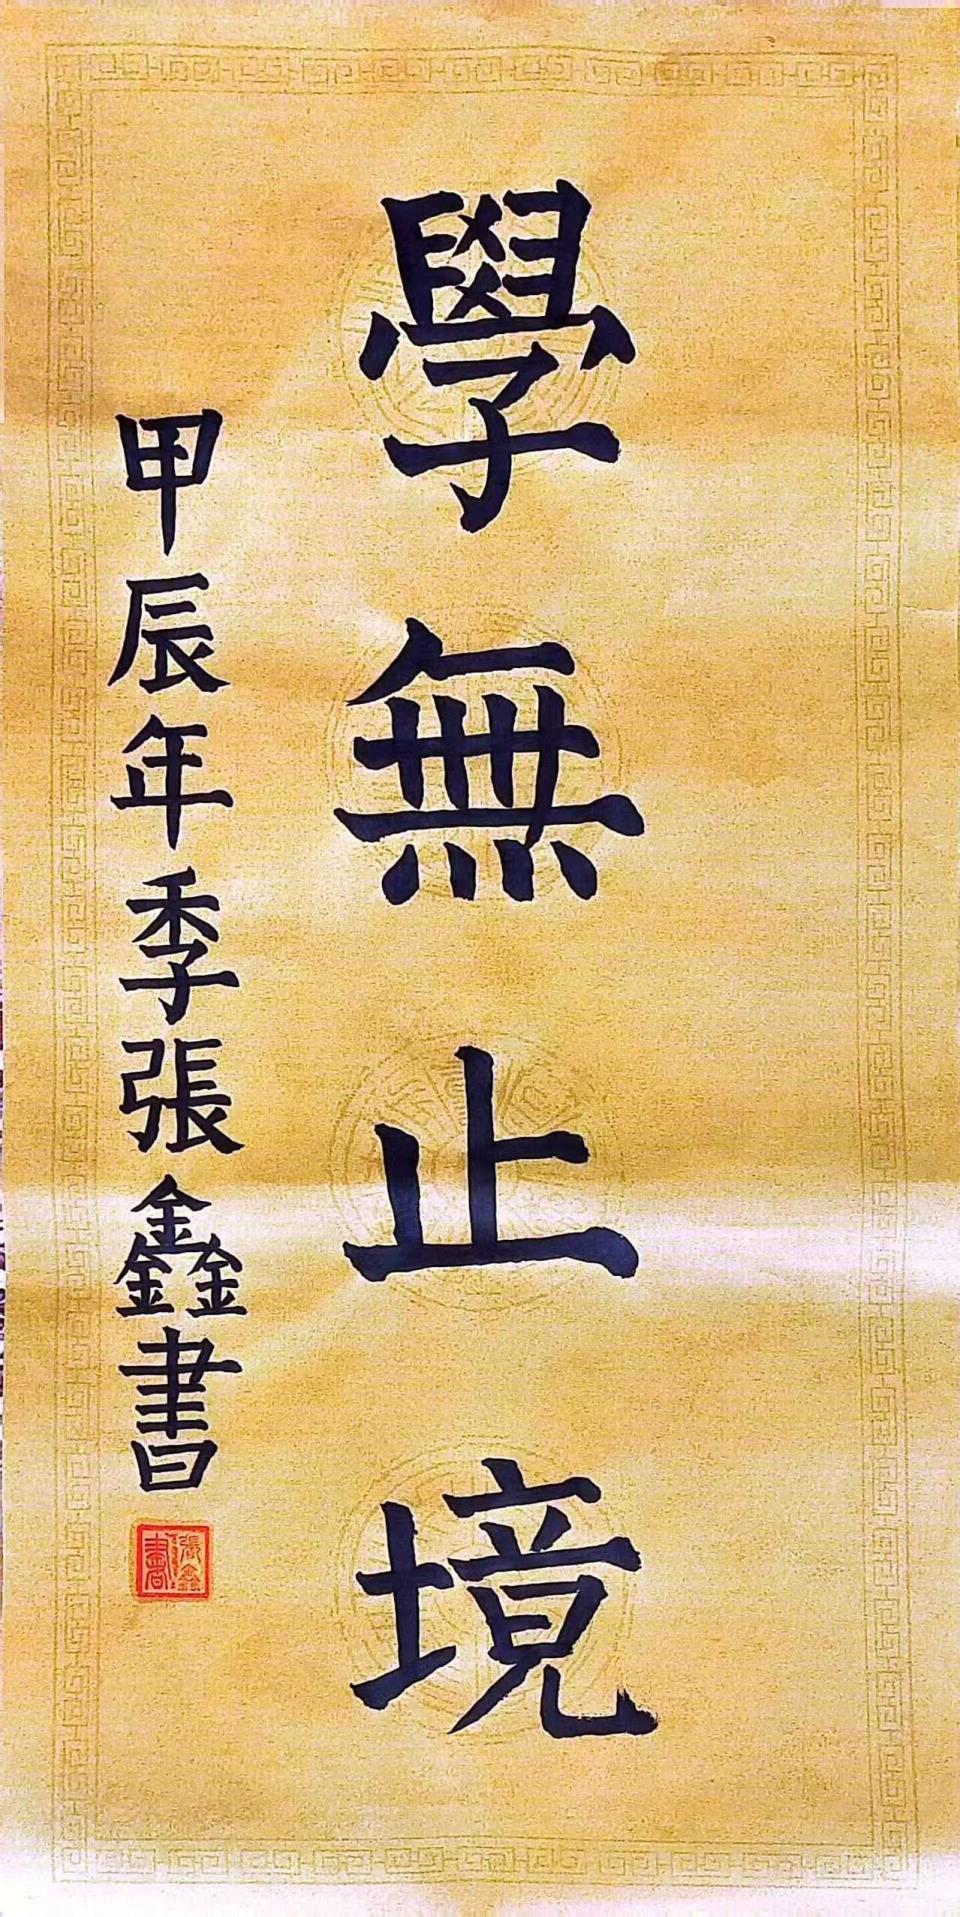 學無止境
甲辰年季張鑫書
張鑫
書